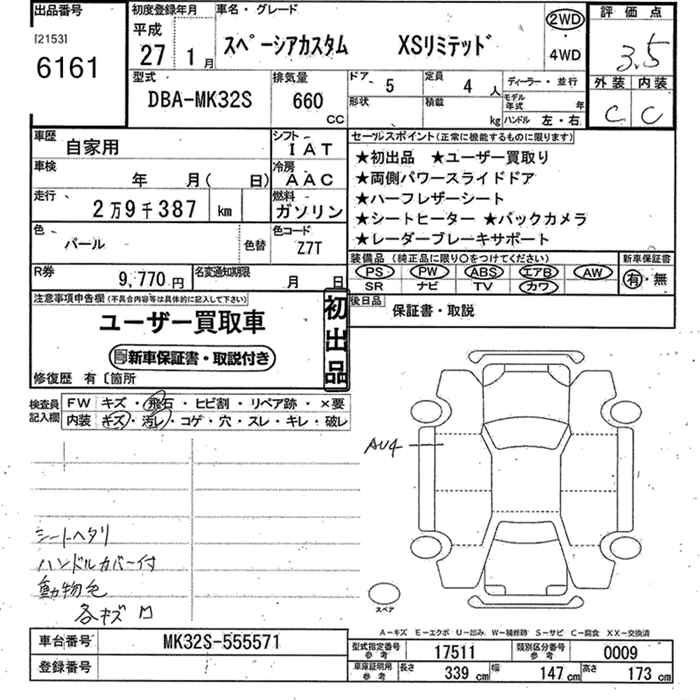 出品番号 初度登録年月 車名・グレード 評価点
[2153] 平成
6161 27年 1月 スペーシアカスタム XSリミテッド 2WD ・ 4WD 3.5
型式 排気量 ドア 定員 ディーラー・並行 外装 内装
DBA-MK32S 660 CC 5 4人 C C
形状 積載 kg モデル年式 年
ハンドル 左・右
車歴 自家用 シフト IAT セールスポイント(正常に機能するものに限ります)
車検 年 月( 日) 冷房 AAC ★初出品 ★ユーザー買取り
★両側パワースライドドア
走行 2万9千387 km 燃料 ガソリン ★ハーフレザーシート
★シートヒーター ★バックカメラ
色 パール 色替 色コード Z7T ★レーダーブレーキサポート
装備品(純正品に限り○をつけてください) 新車保証書
R券 9,770円 名変通知期限 月 日 PS PW ABS エアB AW 有・無
SR ナビ TV カワ
注意事項申告欄(不具合内容等は具体的に記入して下さい) 初出品 後日品 保証書・取説
ユーザー買取車
新車保証書・取説付き
修復歴 有〔箇所
検査員記入欄 FW キズ・飛石・ヒビ割・リペア跡・×要
内装 キズ・汚レ・コゲ・穴・スレ・キレ・破レ
AU4
シートヘタリ
ハンドルカバー付
動物毛
各キズ
スペア
A-キズ E-エクボ U-凹み W-補修跡 S-サビ C-腐食 XX-交換済
車台番号 MK32S-555571 型式指定番号 参考 17511 類別区分番号 参考 0009
登録番号 車庫証明用 参考 長さ 339cm 幅 147cm 高さ 173cm